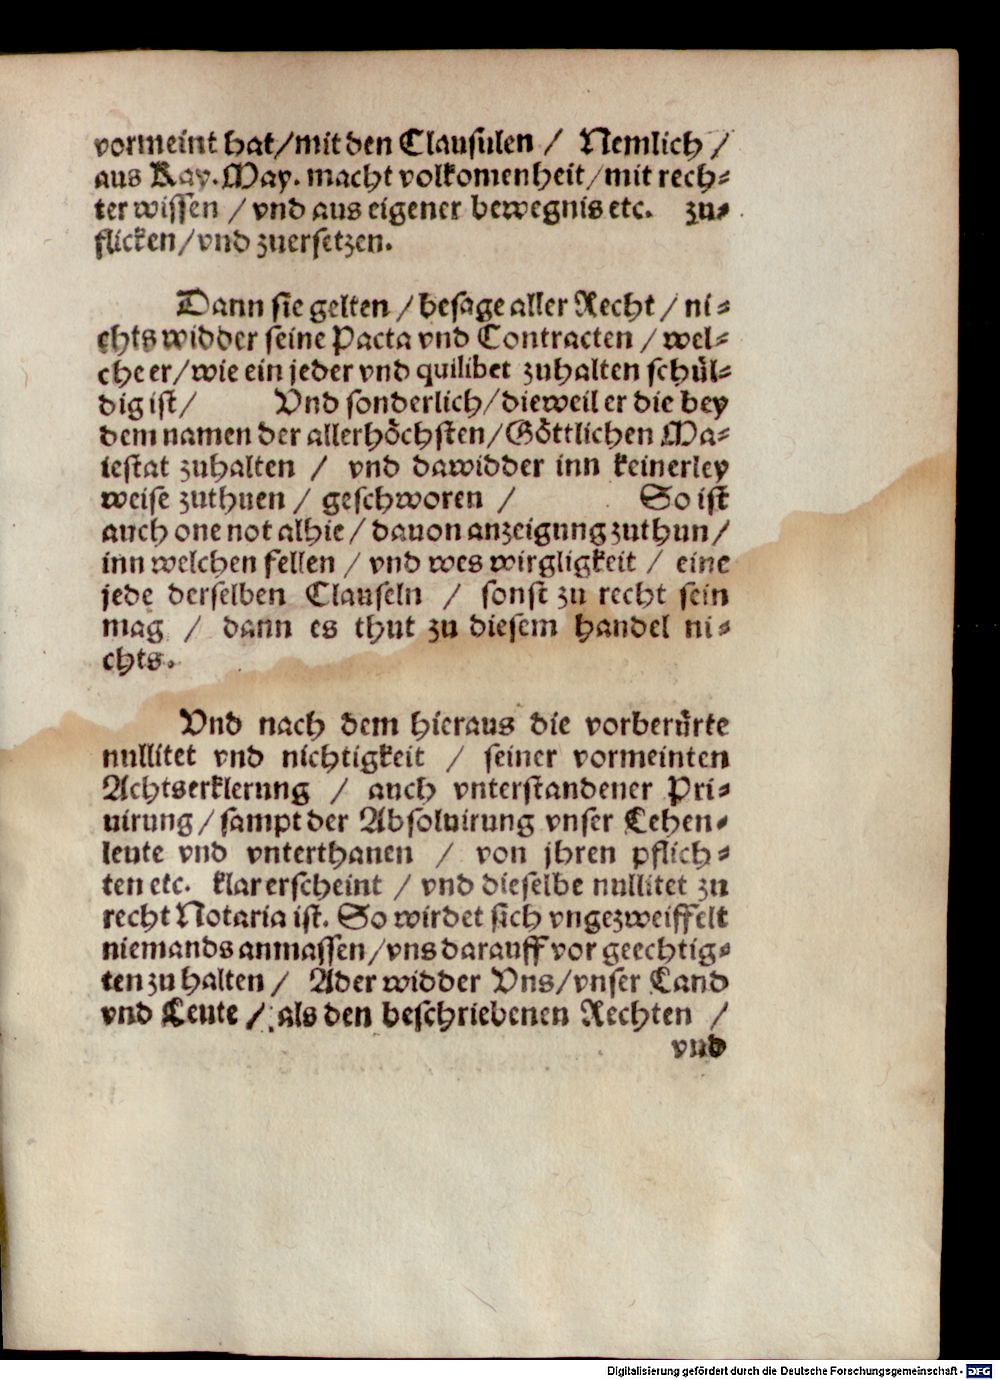 vormeint hat/mit den Clausulen / Nemlich /
aus Kay. May. macht volkomenheit/mit rech⸗
ter wissen / vnd aus eigener bewegnis etc. zu⸗
flicken/vnd zuersetzen.
Dann sie gelten / besage aller Recht / ni⸗
chts widder seine Pacta vnd Contracten / wel⸗
che er/wie ein jeder vnd quilibet zuhalten schül⸗
dig ist/ Vnd sonderlich/dieweil er die bey
dem namen der allerhöchsten/Göttlichen Ma⸗
iestat zuhalten / vnd dawidder inn keinerley
weise zuthuen / geschworen / So ist
auch one not alhie / dauon anzeigung zuthun /
inn welchen fellen / vnd wes wirgligkeit / eine
jede derselben Clauseln / sonst zu recht sein
mag / dann es thut zu diesem handel ni⸗
chts.
Vnd nach dem hieraus die vorberürte
nullitet vnd nichtigkeit / seiner vormeinten
Achtserklerung / auch vnterstandener Pri⸗
uirung / sampt der Absoluirung vnser Lehen⸗
leute vnd vnterthanen / von jhren pflich⸗
ten etc. klar erscheint / vnd dieselbe nullitet zu
recht Notaria ist. So wirdet sich vngezweiffelt
niemands anmassen/vns darauff vor geechtig⸗
ten zu halten / Ader widder Vns/vnser Land
vnd Leute / als den beschriebenen Rechten /
vnd
Digitalisierung gefördert durch die Deutsche Forschungsgemeinschaft - DFG